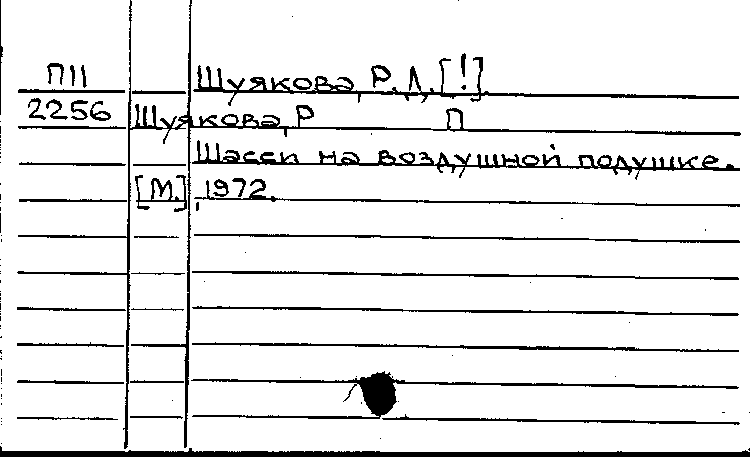 П11 Шуякова, Р. Д. [!].
2256 Шуякова, Р П
Шасси на воздушной подушке.
[М.], 1972.